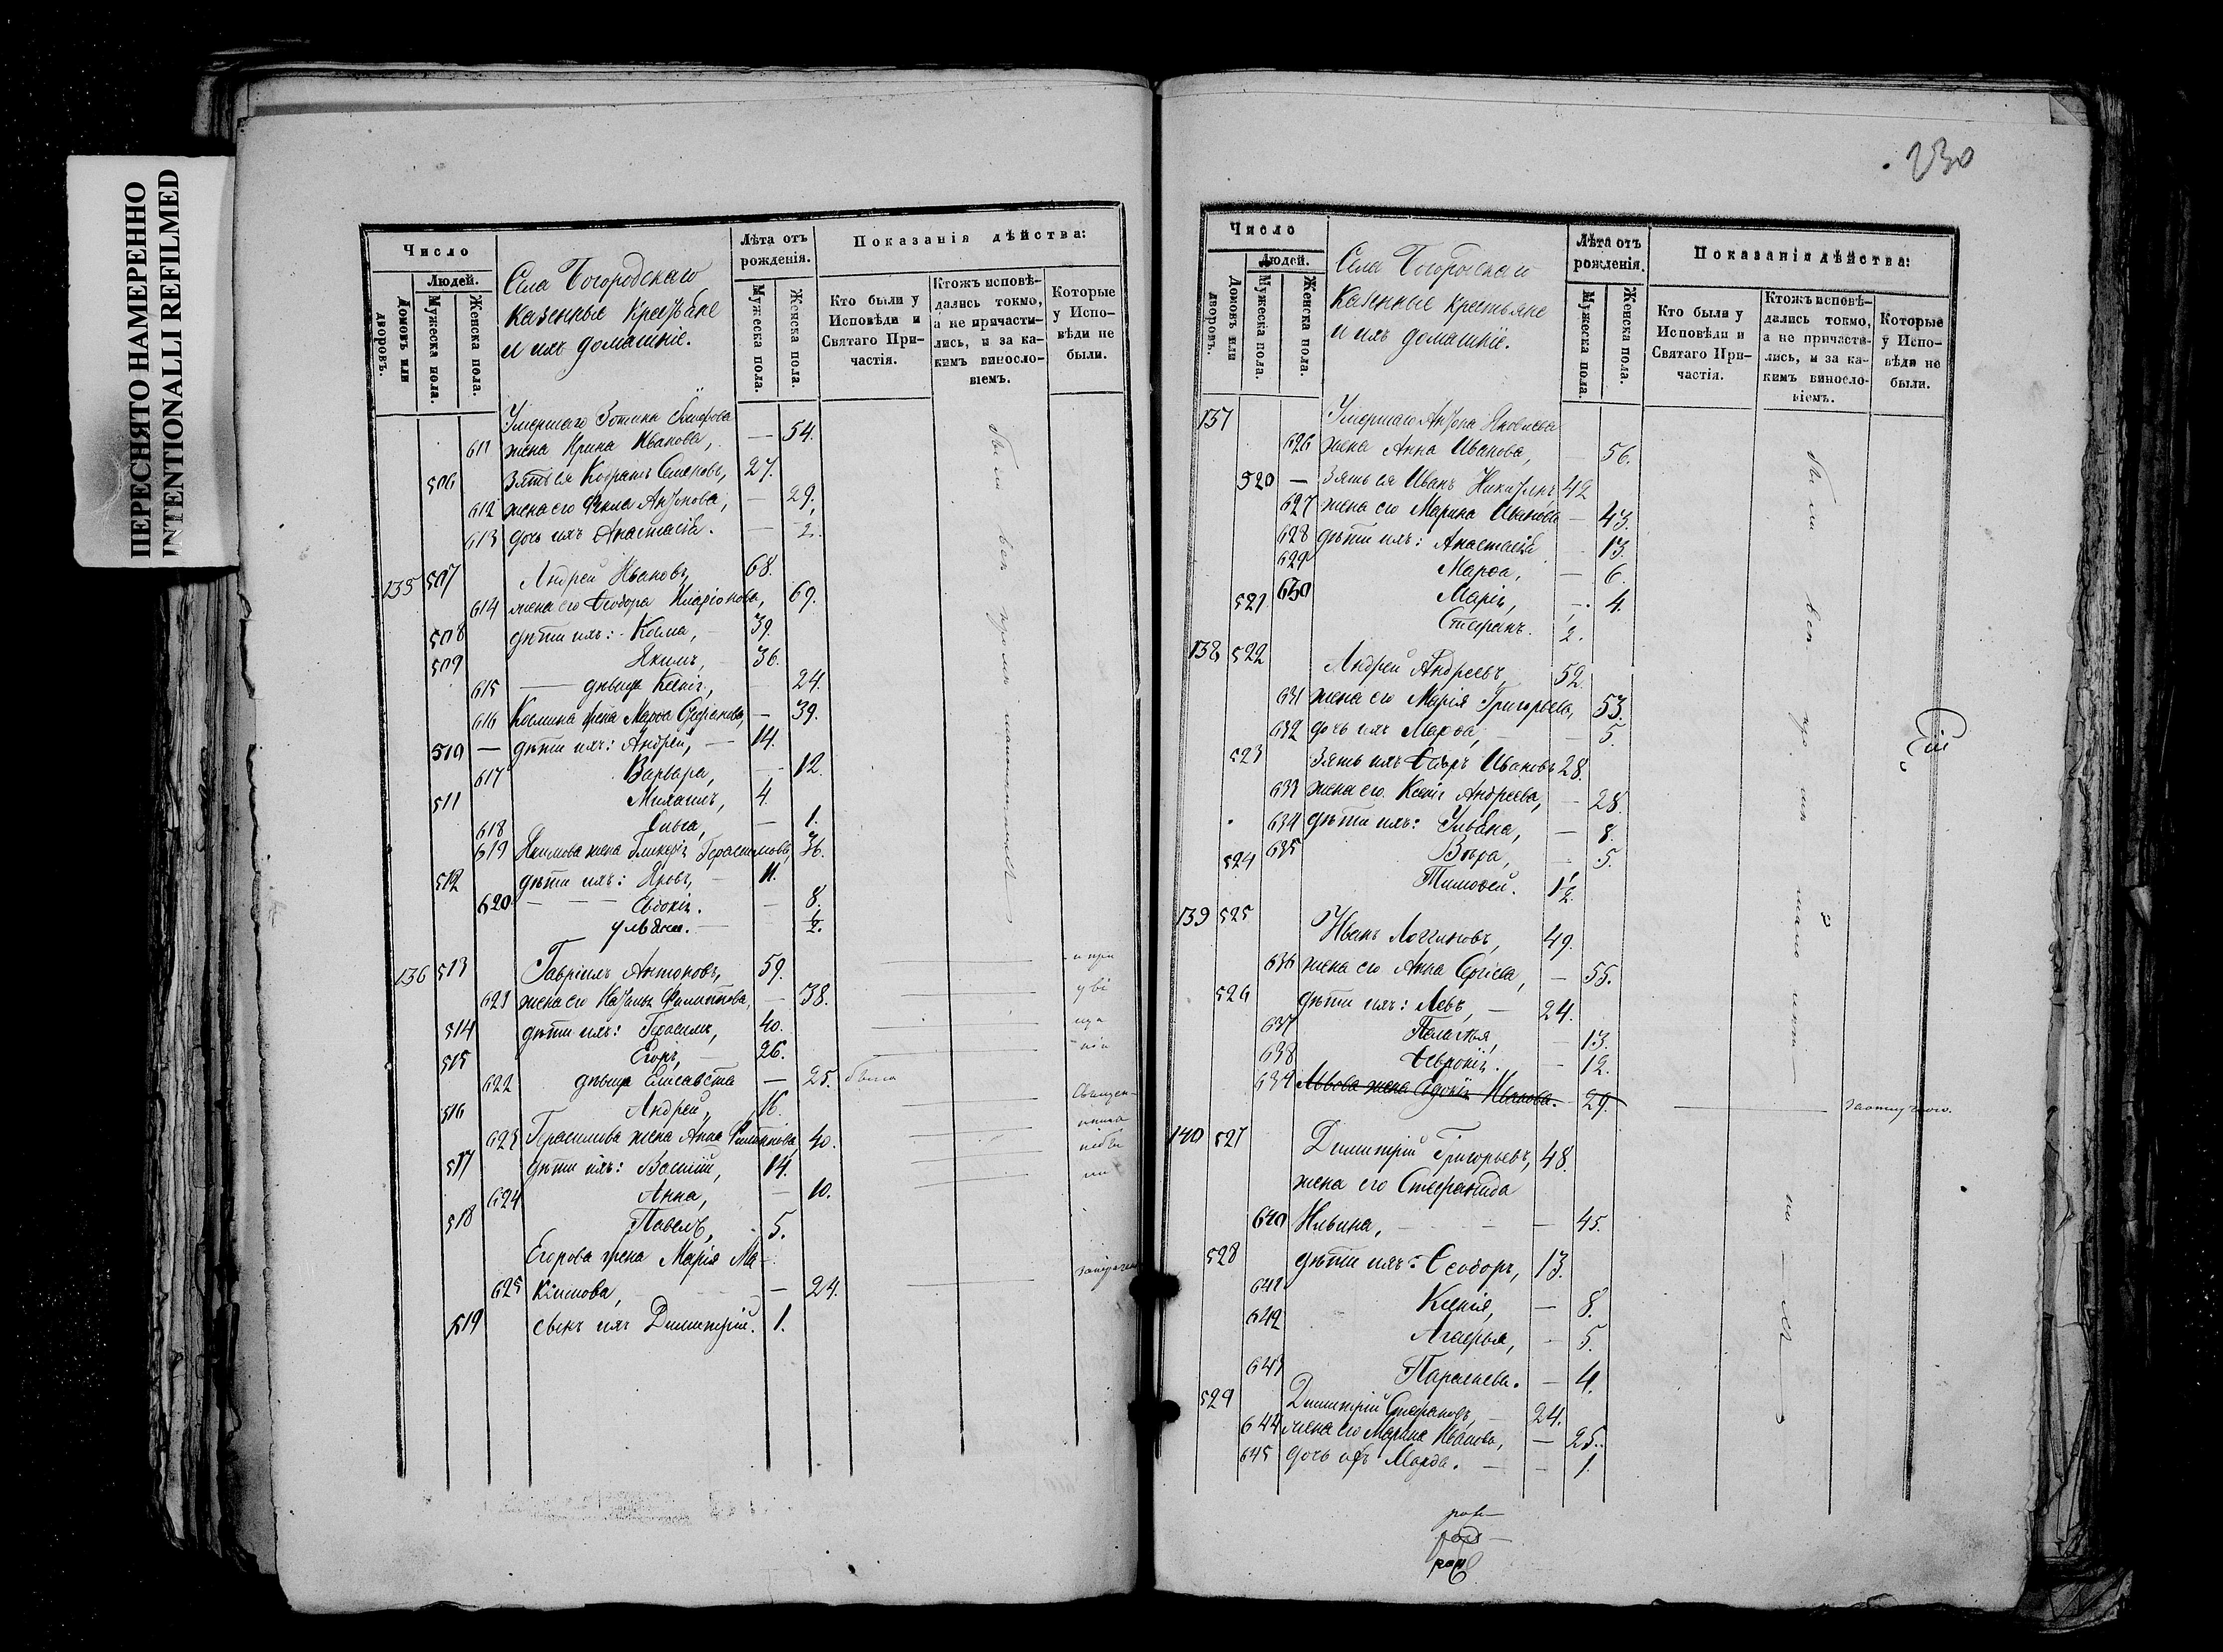 ПЕРЕСНЯТО НАМЕРЕННО
INTENTIONALLI REFILMED
Число
Людей.
Домовъ или дворовъ.
Мужеска пола.
Женска пола.
Села Богородскаго
казенные крестьяне
и ихъ домашніе.
Лѣта отъ рожденія.
Мужеска пола.
Женска пола.
Показанія дѣйства:
Кто были у Исповѣди и Святаго Причастія.
Ктожъ исповѣдались токмо, а не причастились, и за какимъ винословіемъ.
Которые у Исповѣди не были.
Умершаго Зотика
611 жена Ирина Иванова, — 54.
506 Зять ея 27.
612 жена его Фекла Антонова, — 29.
613 дочь ихъ Анастасія. — 2.
135 507 Андрей Ивановъ, 68.
614 жена его Ѳеодора Иларіонова, 69.
508 дѣти ихъ: Косма, — 39.
509 Якимъ, — 36.
615 — дѣвица Ксенія, 24.
616 Космина жена Марѳа Стефанова, — 39.
510 — дѣти ихъ: Андрей, — 14.
617 Варвара, — 12.
511 Михаилъ, 4.
618 Ольга, — 1.
619 Якимова жена Гликерія Герасимова, 36.
512 дѣти ихъ: — 11.
620 — Евдокія. — 8.
Ульяна. — 1/2.
136 513 Гавріилъ Антоновъ, 59.
621 жена его Филиппова, — 38.
514 дѣти ихъ: Герасимъ, 40.
515 Егоръ, — 26.
622 дѣвица Елисавета — 25. была
516 Андрей, 16.
623 Герасимова жена Анна Филиппова, 40.
517 дѣти ихъ: Василій, 14.
624 Анна, — 10.
518 Павелъ, 5.
Егорова жена Марія Ма-
625 ксимова, — 24.
519 сынъ ихъ Димитрій. 1.
Были вси
230
Число
Людей.
Домовъ или дворовъ.
Мужеска пола.
Женска пола.
Села Богородскаго
казенные крестьяне
и ихъ домашніе.
Лѣта отъ рожденія.
Мужеска пола.
Женска пола.
Показанія дѣйства:
Кто были у Исповѣди и Святаго Причастія.
Ктожъ исповѣдались токмо, а не причастились, и за какимъ винословіемъ.
Которые у Исповѣди не были.
137 Умершаго Антона Яковлева
626 жена Анна Иванова, — 56.
520 — Зять ея Иванъ Никитинъ 42
627 жена его Марина Иванова — 43.
628 дѣти ихъ: Анастасія — 13.
629 Марѳа, — 6.
630 Марія, — 4.
521 Стефанъ. 2.
138 522 Андрей Андреевъ, 52.
631 жена его Марія Григорьева, 53.
632 дочь ихъ Марѳа, — 5.
523 Зять ихъ Ивановъ 28.
633 жена его Ксенія Андреева, — 28.
634 дѣти ихъ: Ульяна, — 8.
635 Вѣра, — 5.
524 Тимоѳей. 1 1/2.
139 525 Иванъ Логгиновъ, 49.
636 жена его Анна Сергіева, — 55.
526 дѣти ихъ: Левъ, — 24.
637 Пелагія, — 13.
638 Ѳеврónія. — 12.
639 Львова жена Евдокія Иванова. — 29.
140 527 Димитрій Григорьевъ, 48.
жена его Стефанида
640 Ильина, — 45.
528 дѣти ихъ: Ѳеодоръ, 13.
641 Ксенія, — 8.
642 Агаѳья, — 5.
643 Параскева. — 4.
529 Димитрій Стефановъ, 24.
644 жена его Марина Иванова, — 25.
645 дочь ихъ Марѳа. — 1.
Были вси